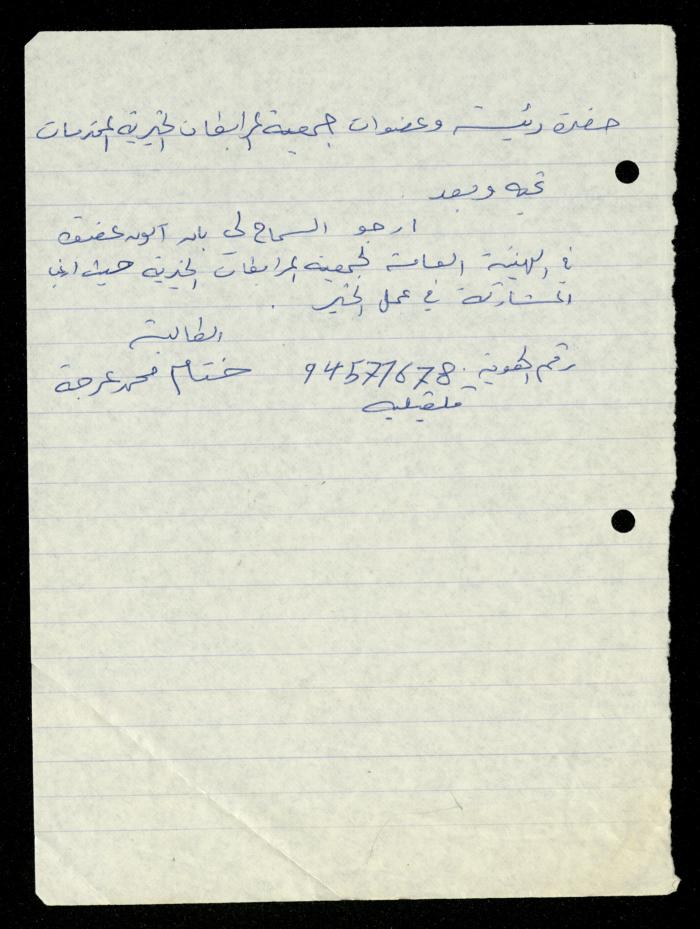 حضرة رئيسة وعضوات جمعية المرابطات الخيرية المحترمات
تحيه وبعد
ارجو السماح لي بان اكون عضوة
في الهيئة العامة لجمعية المرابطات الخيرية حيث ارغب
المشاركة في عمل الخير .
الطالبة
رقم الهوية . 94571678 ختام محمد عرجة
قلقيليه